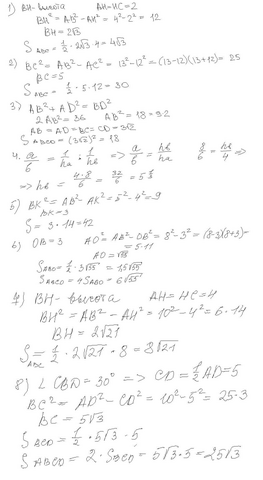 1) BH- высота AH=HC=2
BH² = AB²-AH² = 4²-2² = 12
BH=2√3
S ABC = 1/2 · 2√3 · 4=4√3
2) BC² = AB² - AC² = 13²-12² = (13-12)(13+12) = 25
BC=5
S ABC = 1/2 · 5 · 12 = 30
3) AB² + AD² = BD²
2AB² = 36 AB² = 18
AB = AD = BC = CD = 3√2
S ABCD = (3√2)² = 18
4. a/b = 1/ha : 1/hb => a/b = hb/ha 8/6 = hb/4 =>
=> hb = 4·8/6 = 32/6 = 5 1/3
5) BK² = AB² - AK² = 5² - 4² = 9
BK = 3
S = 3 · 14 = 42
6) OB = 3 AO² = AB² - OB² = 8² - 3² = (8-3)(8+3) =
= 5·11
AO = √55
S ABO = 1/2 · 3√55 = 1,5√55
S ABCD = 4S ABO = 6√55
7) BH - высота AH = HC = 4
BH² = AB² - AH² = 10² - 4² = 6 · 14
BH = 2√21
S ABC = 1/2 · 2√21 · 8 = 8√21
8) ∠ CBD = 30° => CD = 1/2 AD = 5
BC² = AD² - CD² = 10² - 5² = 25·3
BC = 5√3
S BCD = 1/2 · 5√3 · 5
S ABCD = 2 · S BCD = 5√3 · 5 = 25√3